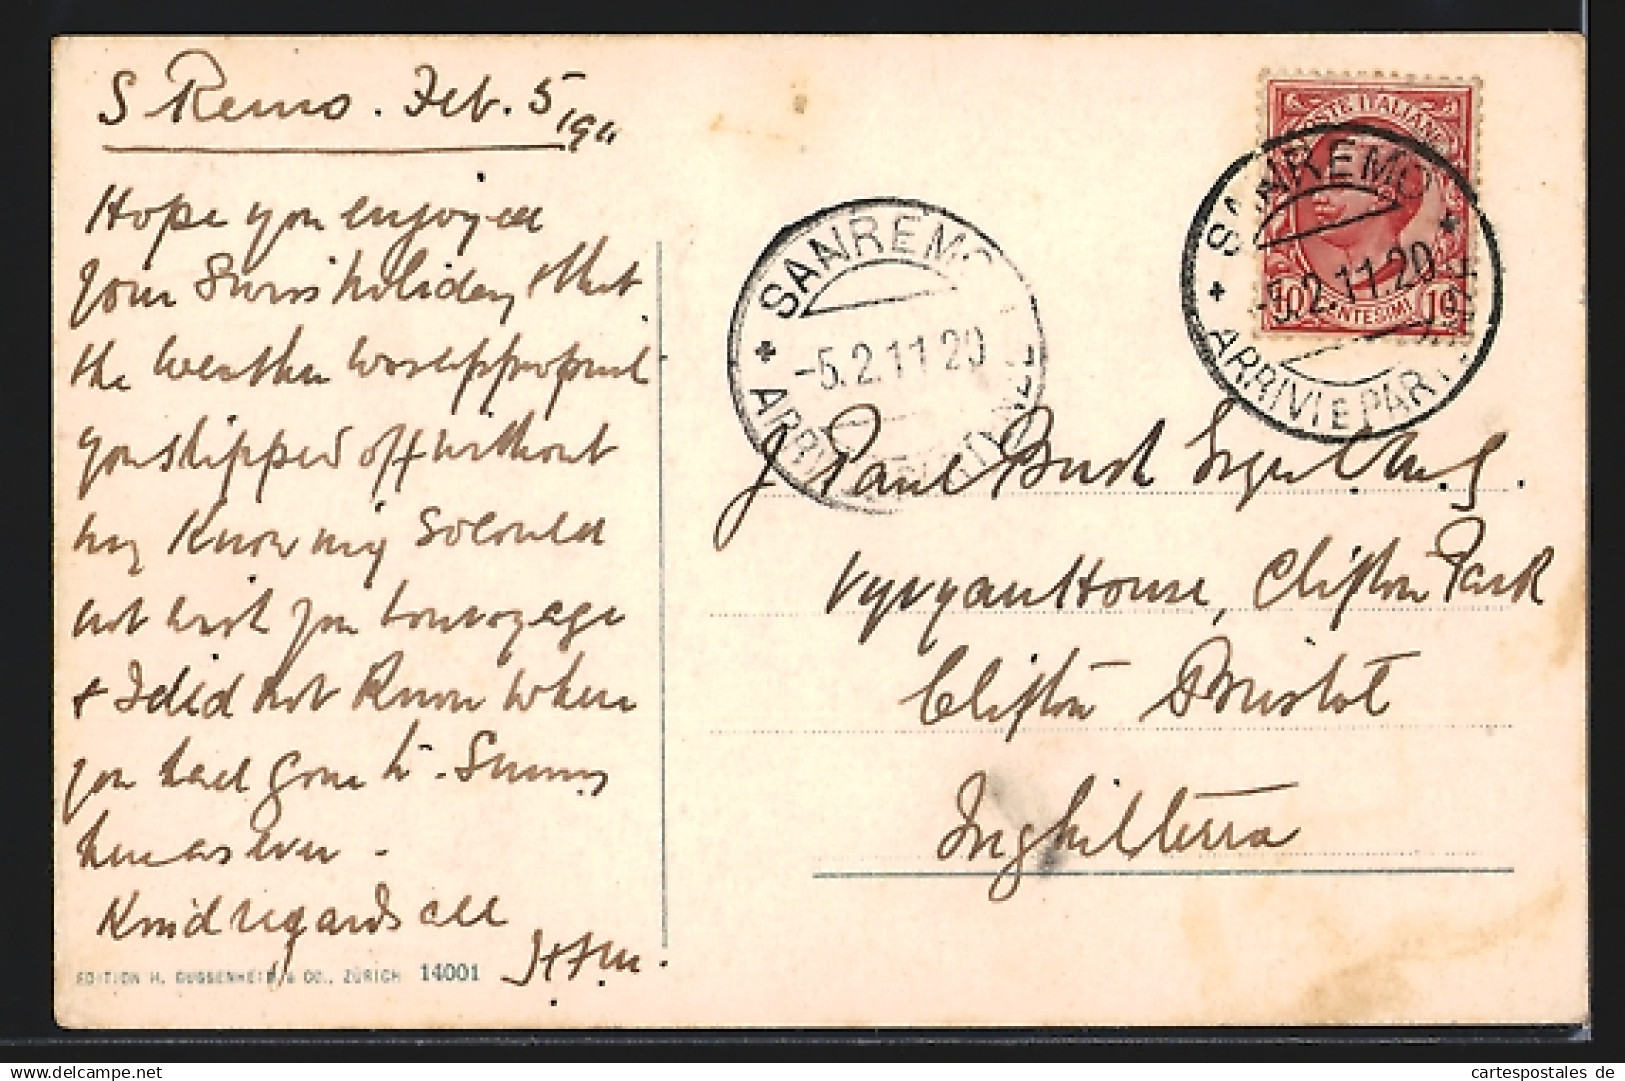 S Remo. Feb. 5/1911
Hope you enjoyed
your Swiss holiday & that
the weather was
you slipped off without
my knowing so could
not wish you bon voyage
& I did not know where
you had gone to. Sunny
here as ever -
Kind regards all
EDITION H. GUGGENHEIM & CO., ZÜRICH 14001
POSTE ITALIANE
10 CENTESIMI 10
SANREMO
-5.2.11.20
ARRIVI E PARTENZE
SANREMO
-5.2.11 20
ARRIVI
J Paul Bush Esqre C.M.G.
Vyvyan House, Clifton Park
Clifton Bristol
Inghilterra
cartespostales de